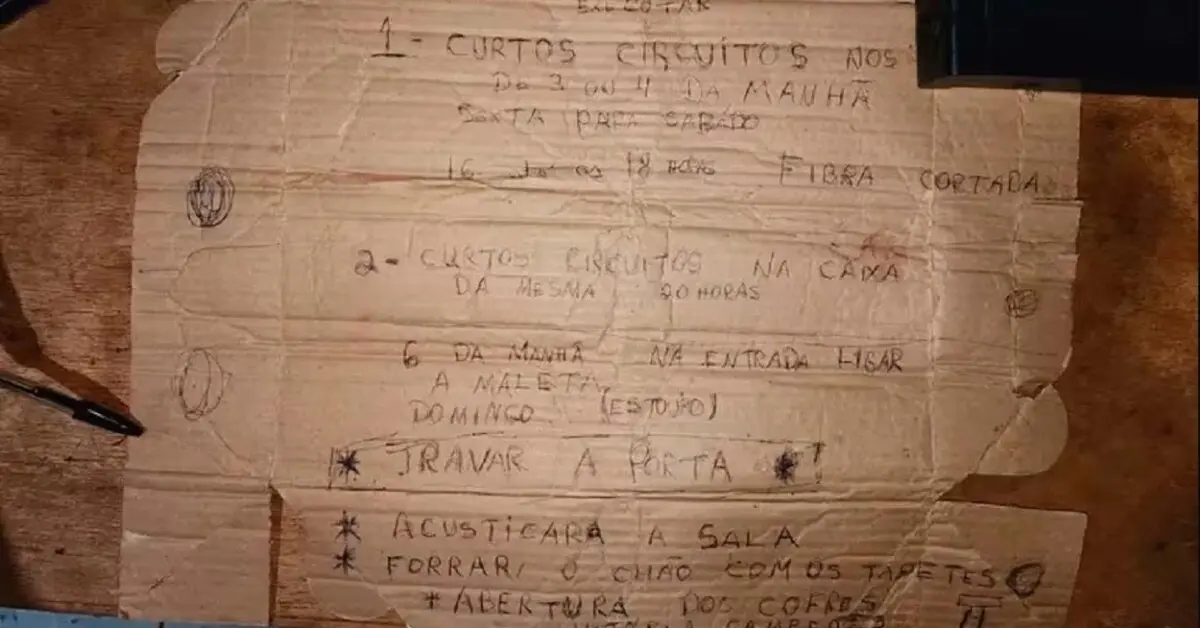 EXECUTAR
1- CURTOS CIRCUITOS NOS
DO 3 OU 4 DA MANHÃ
SEXTA PARA SABADO
16 as 18 HORAS FIBRA CORTADA
2- CURTOS CIRCUITOS NA CAIXA
DA MESMA 20 HORAS
6 DA MANHÃ NA ENTRADA LIGAR
A MALETA,
DOMINGO. (ESTOJÃO)
* TRAVAR A PORTA *!
* ACUSTICARA A SALA
* FORRAR, O CHÃO COM OS TAPETES
* ABERTURA DOS COFRES